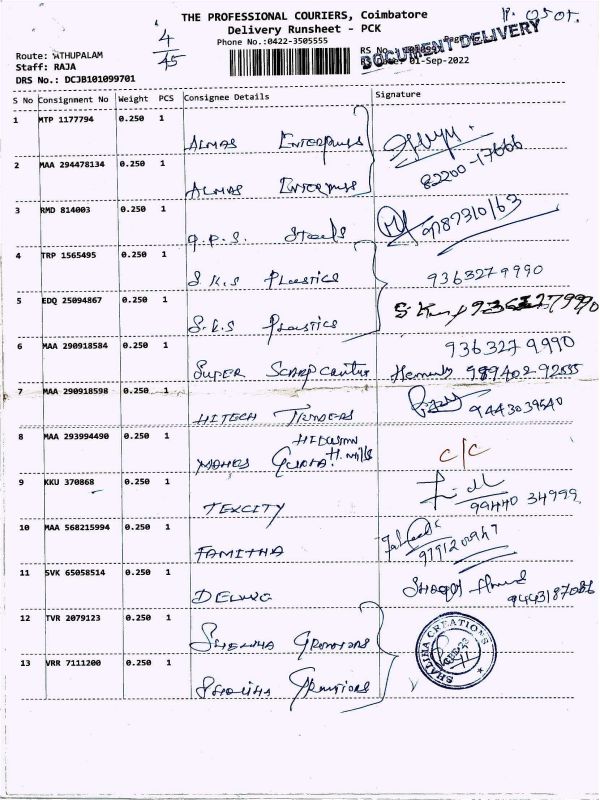 THE PROFESSIONAL COURIERS, Coimbatore
Delivery Runsheet - PCK
Phone No.:0422-3505555
4
45
DOCUMENT DELIVERY
Route: ATHUPALAM
Staff: RAJA
DRS No.: DCJB101099701
RS No
01-Sep-2022
S No Consignment No Weight PCS Consignee Details Signature
1 MTP 1177794 0.250 1
ALMAS Enterprises
82200-17666
2 MAA 294478134 0.250 1
ALMAS Enterprises
3 RMD 814003 0.250 1
9787310163
Q.P.S. Steels
4 TRP 1565495 0.250 1
S.K.S Plastics 9363279990
5 EDQ 25094867 0.250 1
S.K.S Plastics 9363279990
6 MAA 290918584 0.250 1
9363279990
SUPER SCARP 989402-92555
7 MAA 290918598 0.250 1
HITECH TRADERS 9443039540
8 MAA 293994490 0.250 1
H.mills
C/C
9 KKU 370868 0.250 1
TEXCITY 99440 34999
10 MAA 568215994 0.250 1
FAMITHA 9791200947
11 SVK 65058514 0.250 1
9443187086
12 TVR 2079123 0.250 1
SHALIHA CREATIONS
13 VRR 7111200 0.250 1